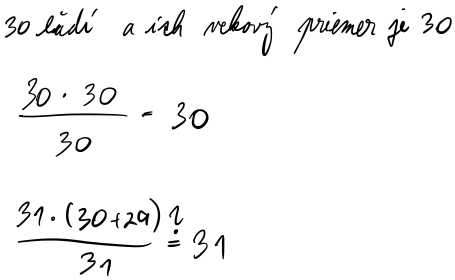 30 ľudí a ich vekový priemer je 30
30 · 30
30
= 30
31 · (30+29)
31
?
= 31